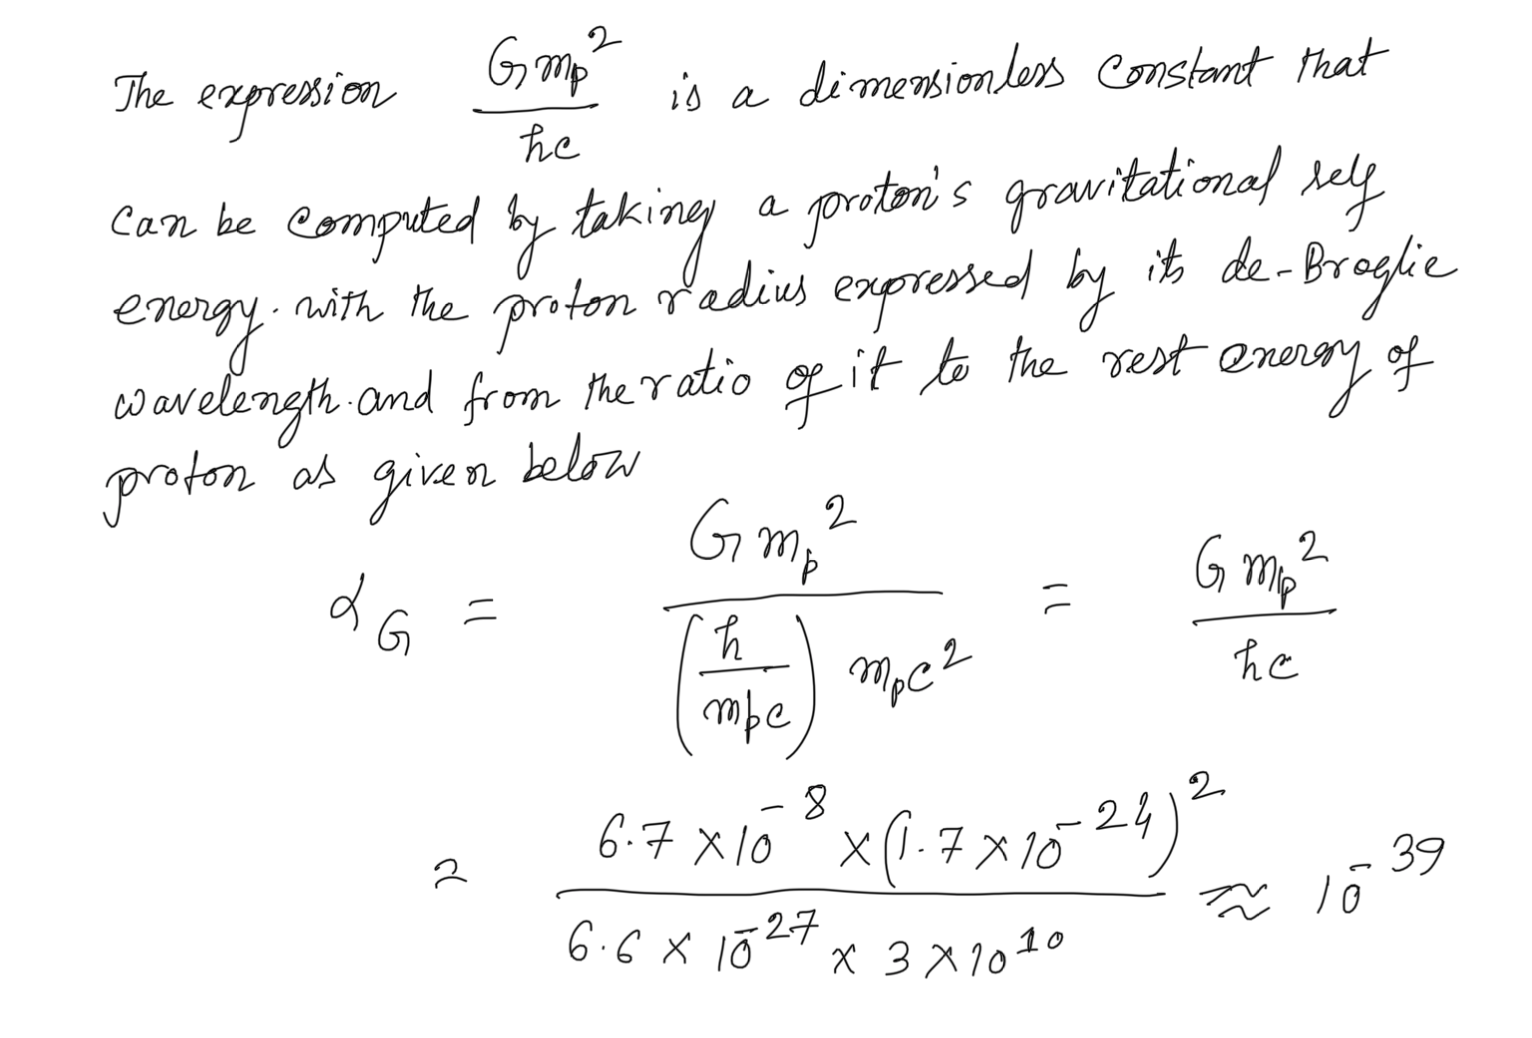 The expression Gmₚ² / ħc is a dimensionless constant that
can be computed by taking a proton's gravitational self
energy. with the proton radius expressed by its de-Broglie
wavelength. and from the ratio of it to the rest energy of
proton as given below
α_G = Gmₚ² / ((ħ / mₚc) mₚc²) = Gmₚ² / ħc
≈ 6.7 × 10⁻⁸ × (1.7 × 10⁻²⁴)² / 6.6 × 10⁻²⁷ × 3 × 10¹⁰ ≈ 10⁻³⁹